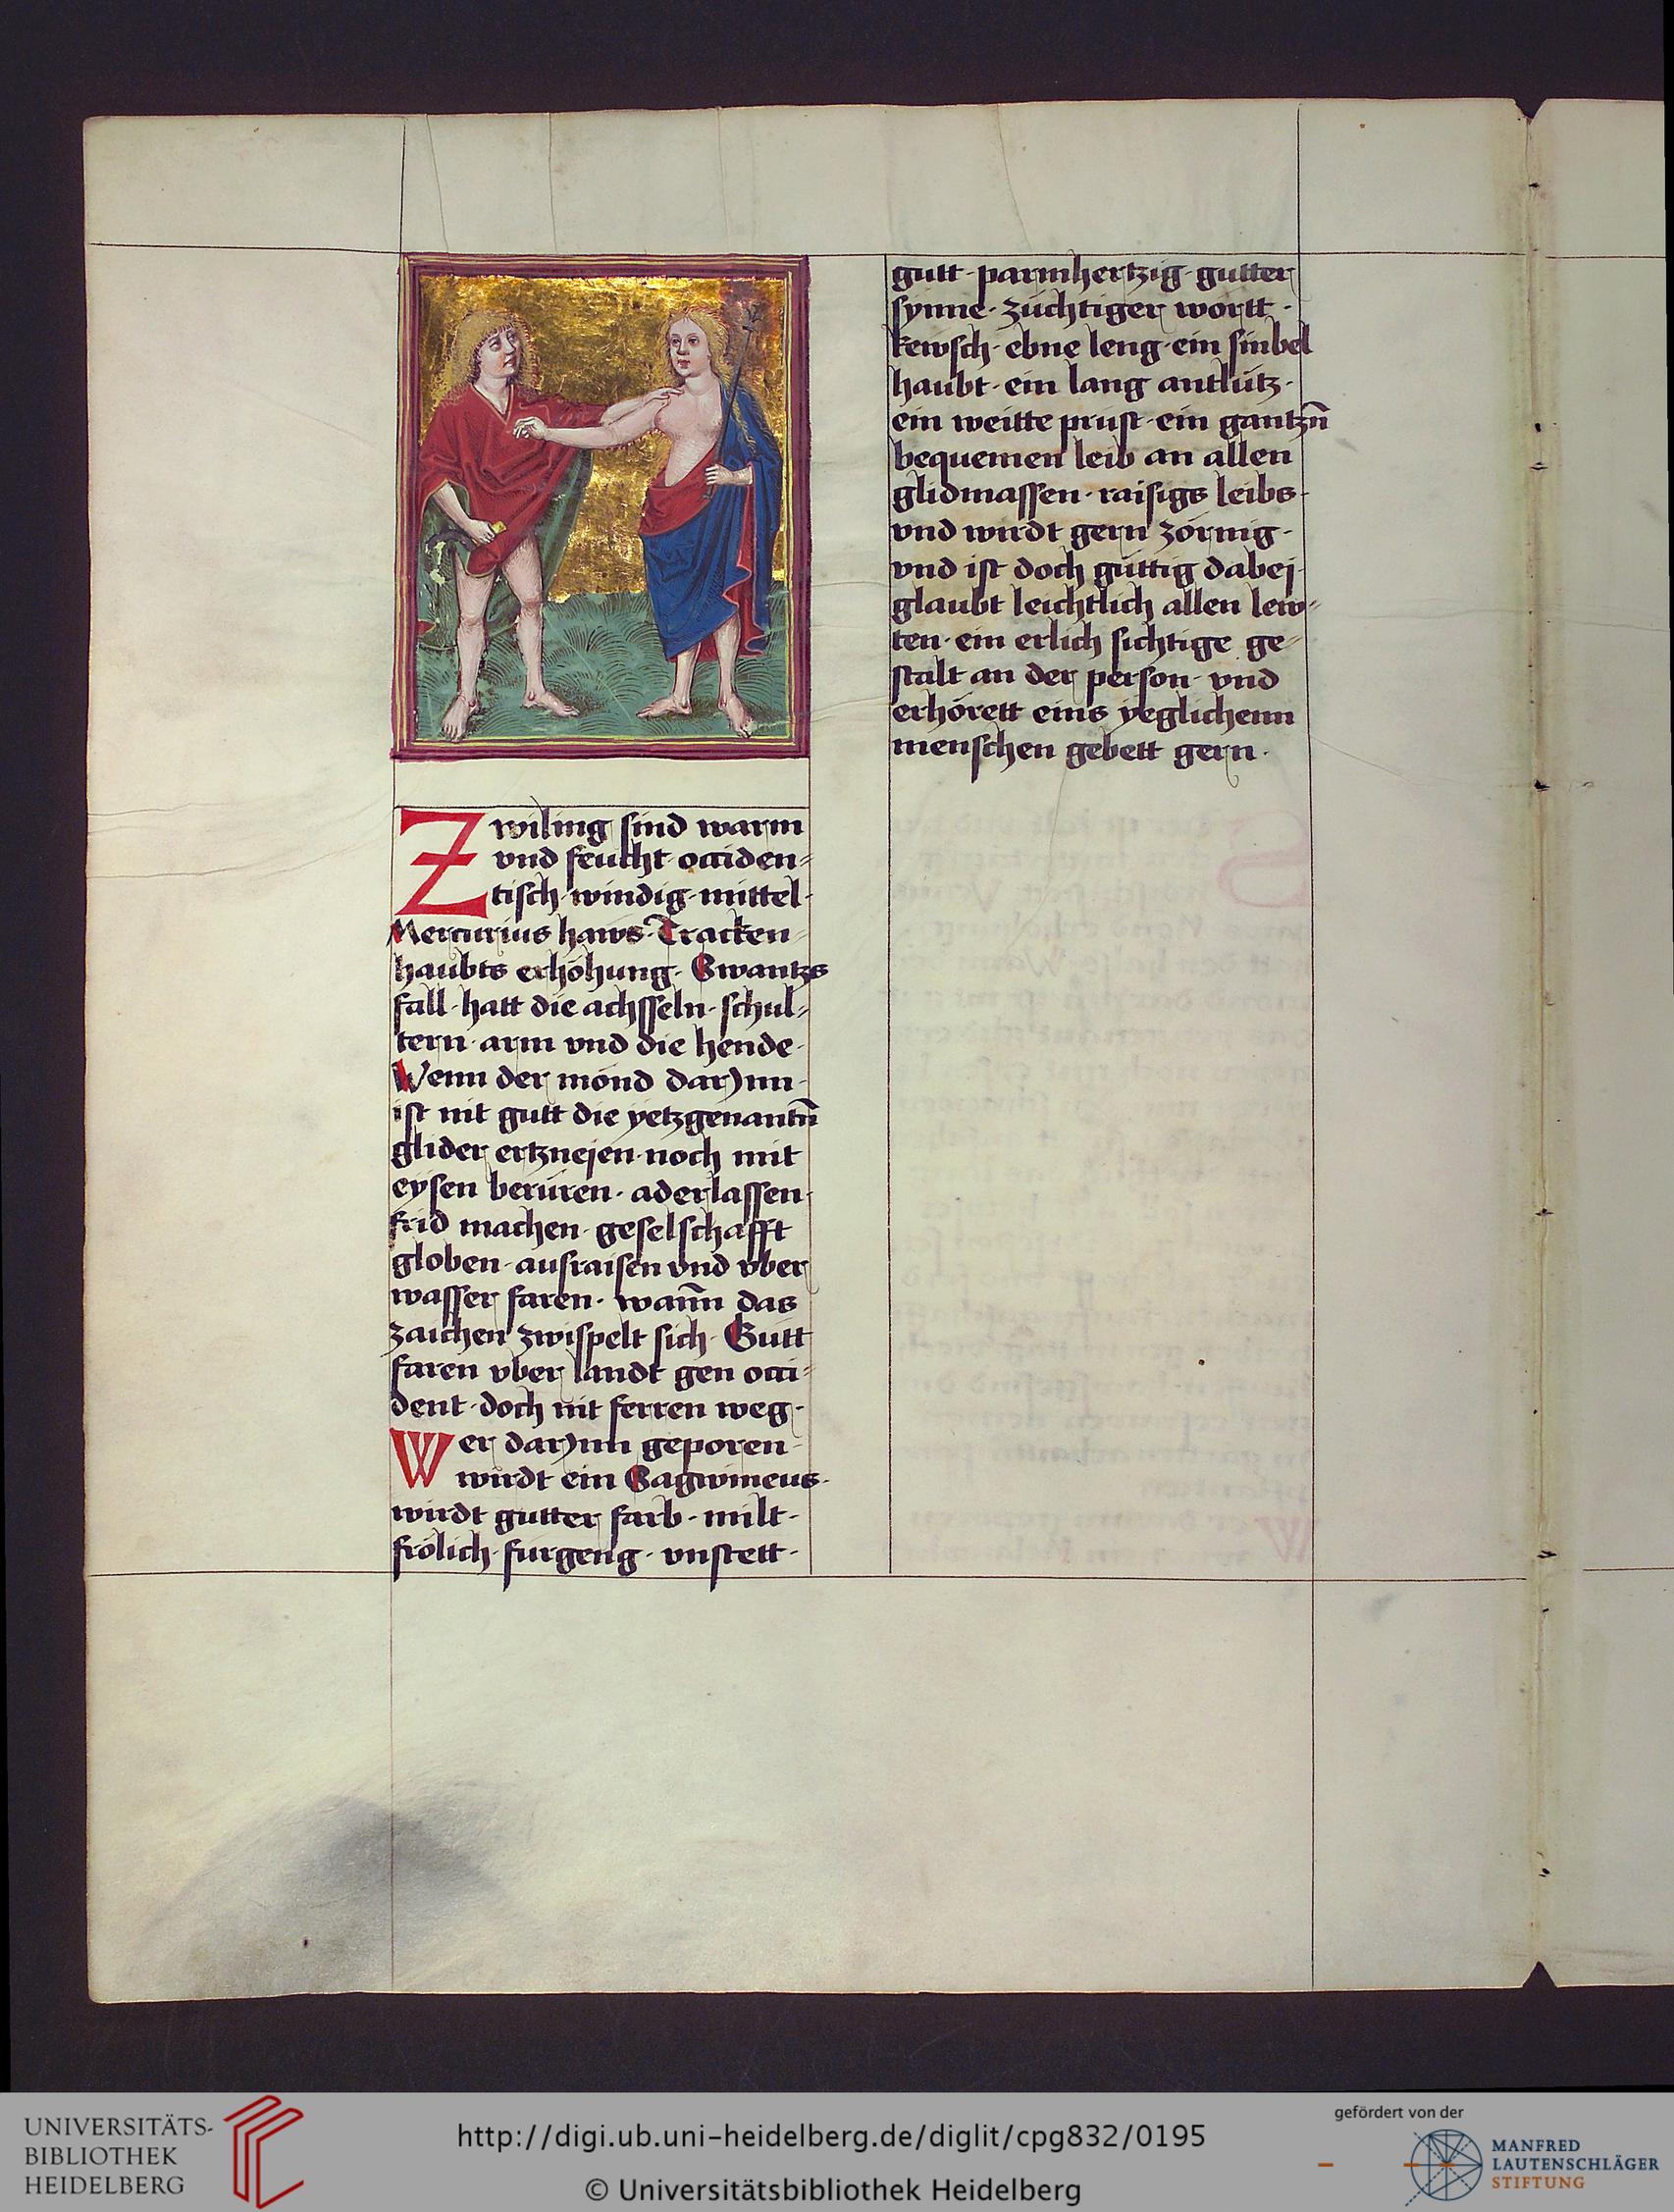 Zwiling sind warm
vnd feucht · occiden=
tisch · windig · mittel ·
Mercurius haws · Tracken=
haubts erhöhung · Swantzs
fall · hatt die achsseln · schul=
tern · arm vnd die hende ·
Wenn der mönd darynn ·
ist nit gutt die yetzgenantn̄
glider ertzneien · noch mit
eysen berüren · aderlassen ·
frid machen · geselschafft
globen · ausraisen vnd vber
wasser faren · wann̄ das
zaichen zwispelt sich · Gutt
faren vber landt gen occi=
dent · doch nit ferren weg ·
Wer darynn geporen ·
wirdt ein Sagwineus ·
wirdt gutter farb · milt ·
frölich · furgeng · vnstett ·
gutt · parmhertzig · gutter
synne · züchtiger wortt ·
kewsch · ebne leng · ein sinbel
haubt · ein lang antlütz ·
ein weitte prust · ein gantzn̄
bequemen leib an allen
glidmassen · raisigs leibs ·
vnd wirdt gern zörnig ·
vnd ist doch güttig dabej ·
glaubt leichtlich allen lew=
ten · ein erlich sichtige ge=
stalt an der person · vnd
erhörett eins yeglichenn
menschen gebett gern ·
UNIVERSITÄTS-
BIBLIOTHEK
HEIDELBERG
http://digi.ub.uni-heidelberg.de/diglit/cpg832/0195
© Universitätsbibliothek Heidelberg
gefördert von der
MANFRED
LAUTENSCHLÄGER
STIFTUNG